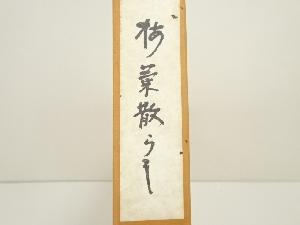 梅葉散らし